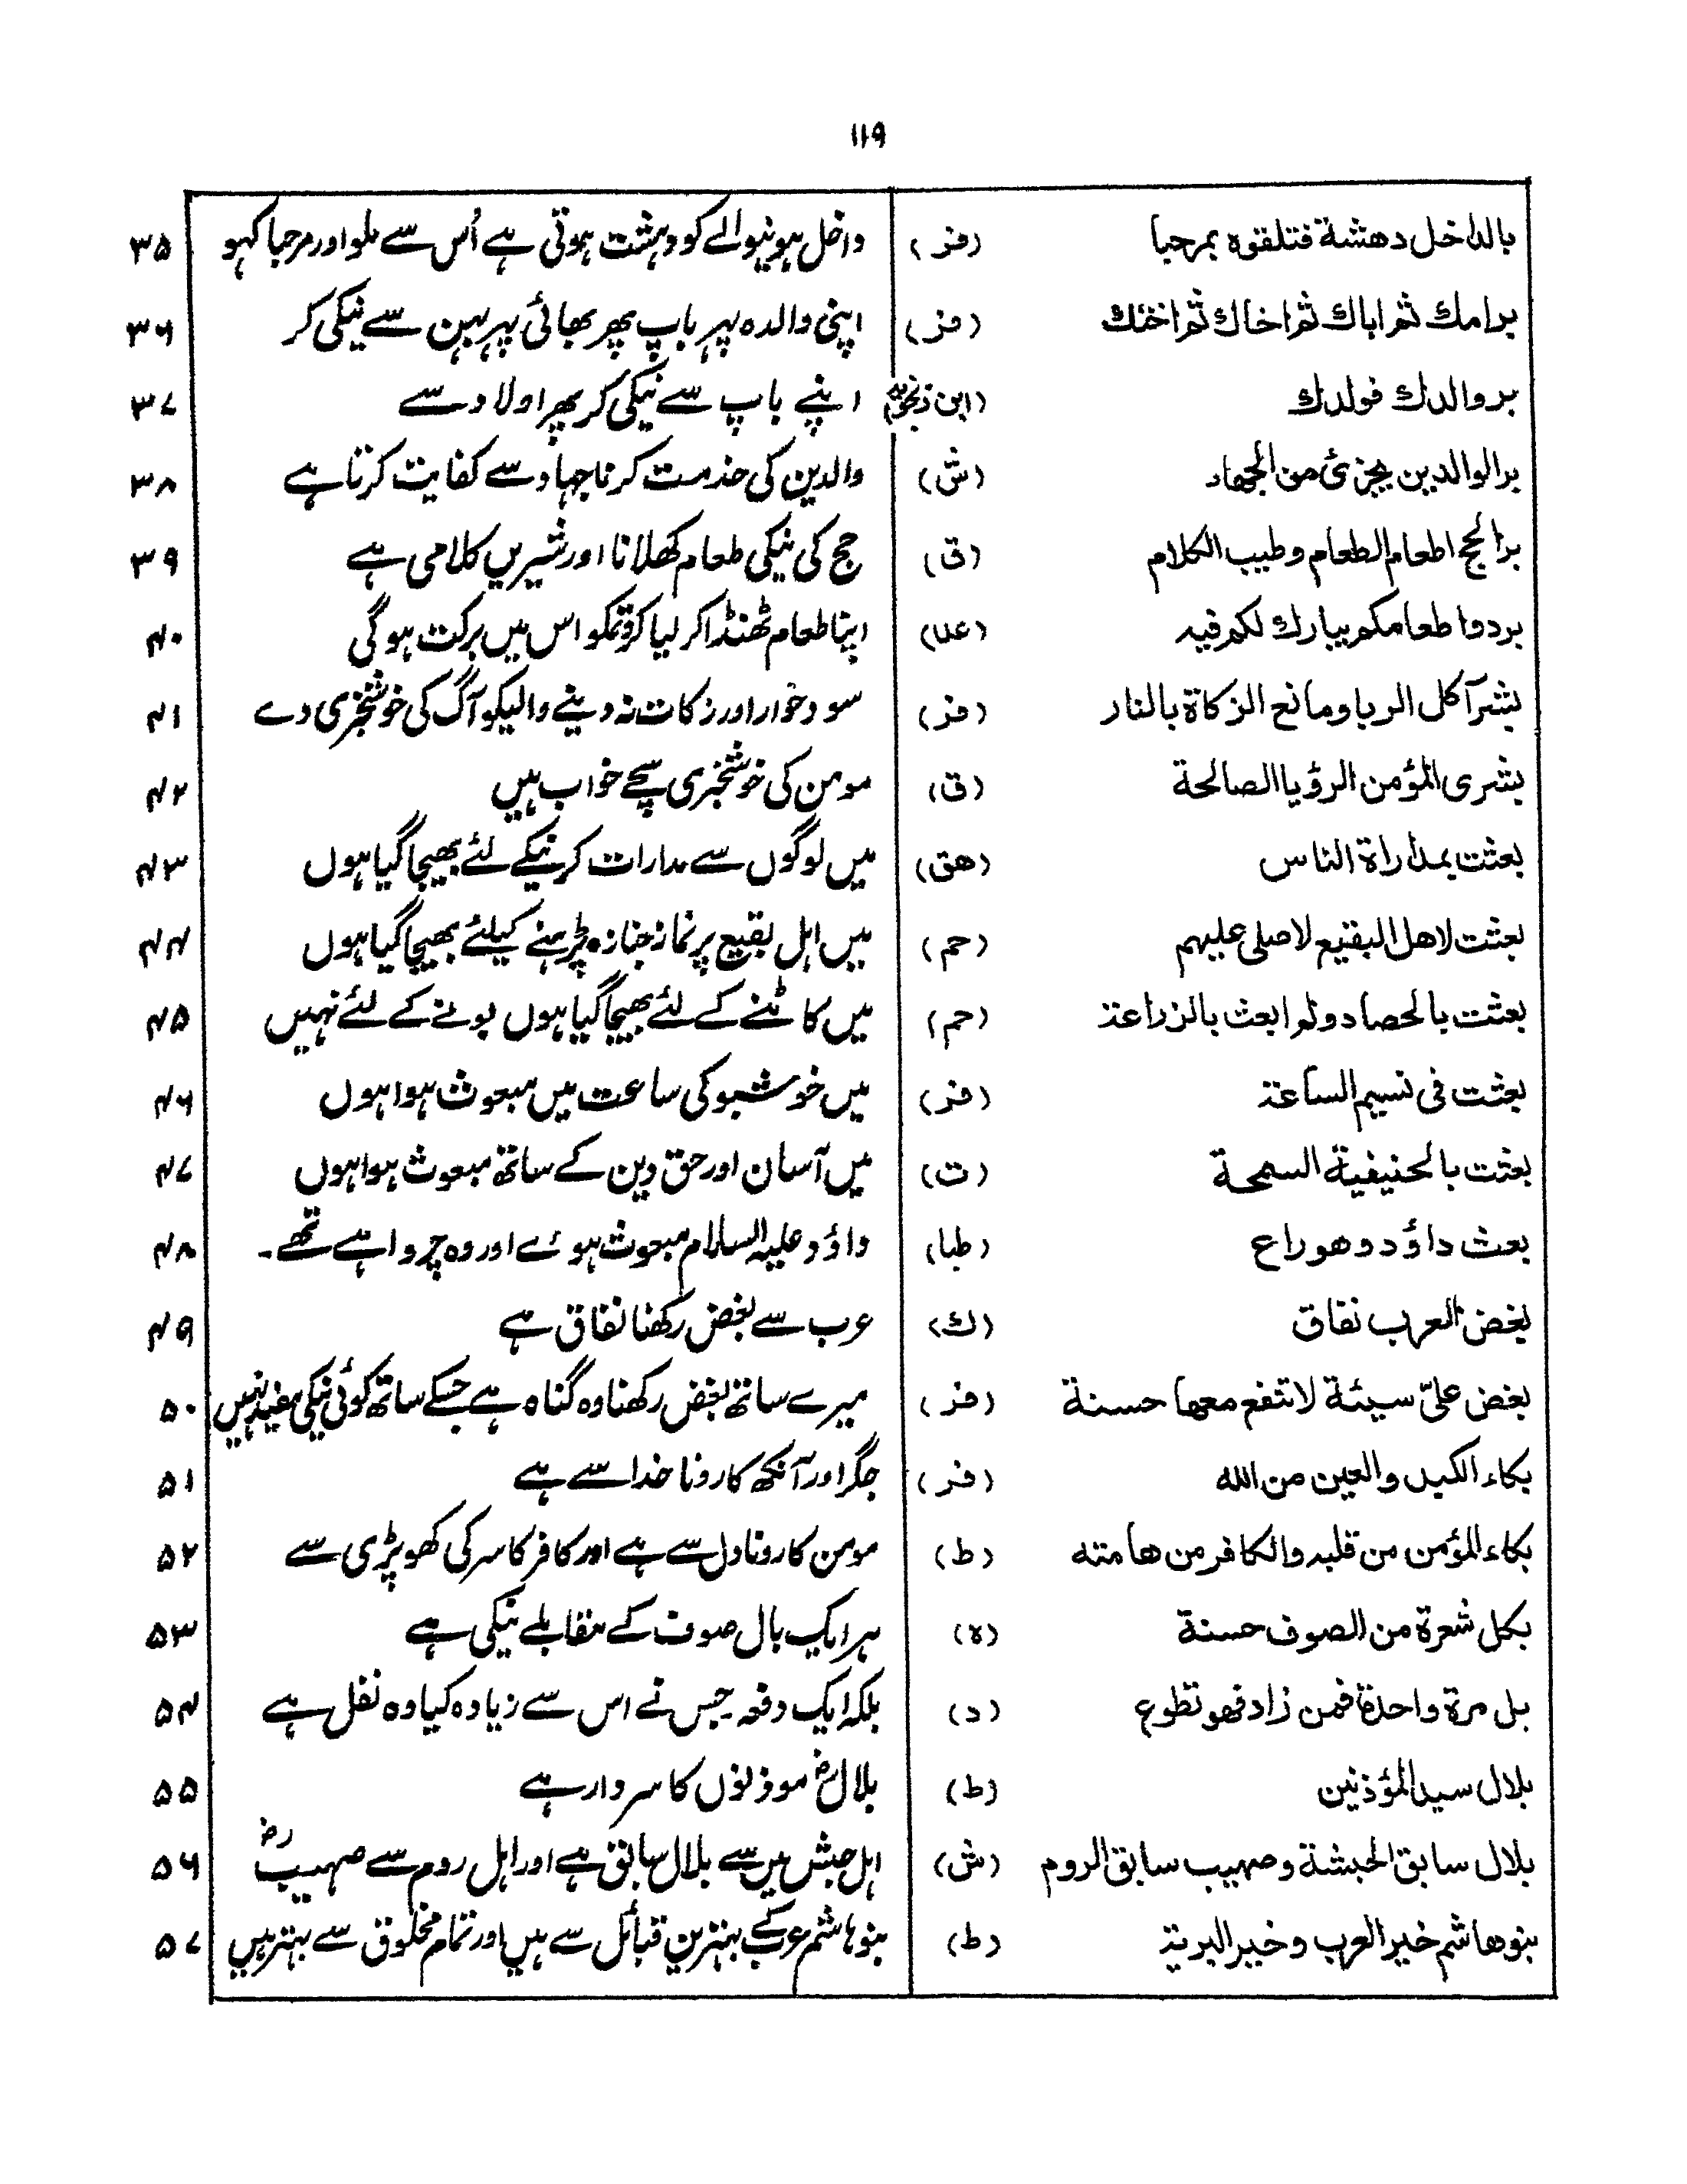 ۱۱۹
بالداخل دهشة فتلقوه بمرحبا (فر) داخل ہونیوالے کو دہشت ہوتی ہے اُس سے ملو اور مرحبا کہو ۳۵
برامك ثم اباك ثم اخاك ثم اختك (فر) اپنی والدہ پہر باپ پھر بھائی پہر بہن سے نیکی کر ۳۶
بر والدك فولدك (ابن زنجویہ) اپنے باپ سے نیکی کر پھر اولاد سے ۳۷
بر الوالدين يجزئ من الجهاد (ش) والدین کی خدمت کرنا جہاد سے کفایت کرتا ہے ۳۸
بر الحج اطعام الطعام وطيب الكلام (ق) حج کی نیکی طعام کھلانا اور شیریں کلامی ہے ۳۹
بردوا طعامكم يبارك لكم فيه (عد) اپنا طعام ٹھنڈا کر لیا کرو تمکو اس میں برکت ہوگی ۴۰
بشر آكل الربا ومانع الزكاة بالنار (فر) سود خوار اور زکات نہ دینے والیکو آگ کی خوشخبری دے ۴۱
بشرى المؤمن الرؤيا الصالحة (ق) مومن کی خوشخبری سچے خواب ہیں ۴۲
بعثت بمداراة الناس (هق) میں لوگوں سے مدارات کرنیکے لئے بھیجا گیا ہوں ۴۳
بعثت لاهل البقيع لاصلى عليهم (حم) میں اہل بقیع پر نماز جنازہ پڑہنے کیلئے بھیجا گیا ہوں ۴۴
بعثت بالحصاد ولم ابعث بالزراعة (حم) میں کاٹنے کے لئے بھیجا گیا ہوں بونے کے لئے نہیں ۴۵
بعثت فى نسيم الساعة (فر) میں خوشبو کی ساعت میں مبعوث ہوا ہوں ۴۶
بعثت بالحنيفية السمحة (ت) میں آسان اور حق دین کے ساتھ مبعوث ہوا ہوں ۴۷
بعث داؤد وهو راع (طبا) داؤد علیہ السلام مبعوث ہوئے اور وہ چرواہے تھے۔ ۴۸
بغض العرب نفاق (ك) عرب سے بغض رکھنا نفاق ہے ۴۹
بغض علىّ سيئة لا تنفع معها حسنة (فر) میرے ساتھ بغض رکھنا وہ گناہ ہے جسکے ساتھ کوئی نیکی مفید نہیں ۵۰
بكاء الكبد والعين من الله (فر) جگر اور آنکھ کا رونا خدا سے ہے ۵۱
بكاء المؤمن من قلبه والكافر من هامته (ط) مومن کا رونا دل سے ہے اور کافر کا سر کی کھوپڑی سے ۵۲
بكل شعرة من الصوف حسنة (ه) ہر ایک بال صوف کے مقابلے نیکی ہے ۵۳
بل مرة واحدة فمن زاد فهو تطوع (د) بلکہ ایک دفعہ۔ جس نے اس سے زیادہ کیا وہ نفل ہے ۵۴
بلال سيد المؤذنين (ط) بلالؓ موذنوں کا سردار ہے ۵۵
بلال سابق الحبشة وصهيب سابق الروم (ش) اہل حبش میں سے بلال سابق ہے اور اہل روم سے صہیبؓ ۵۶
بنو هاشم خير العرب وخير البرية (ط) بنو ہاشم عرب کے بہترین قبائل سے ہیں اور تمام مخلوق سے بہتر ہیں ۵۷